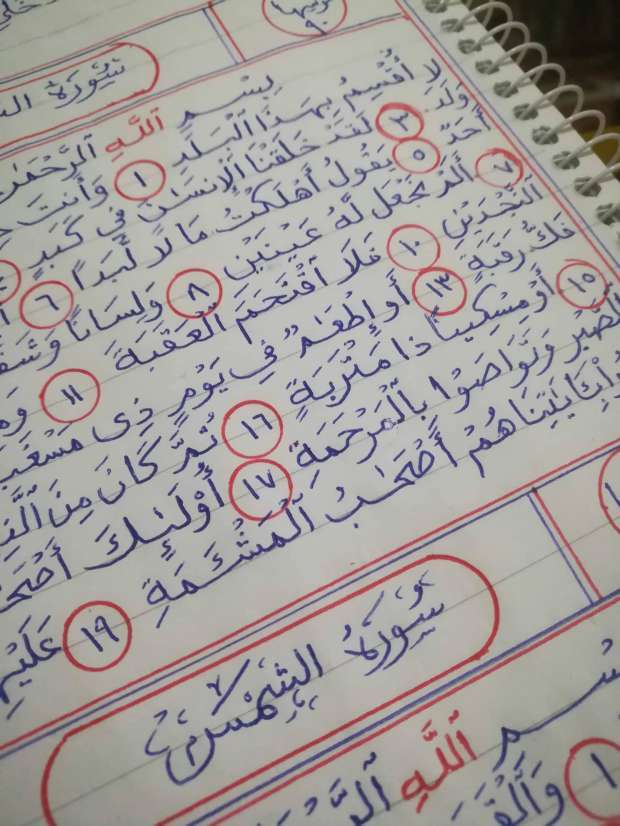 ترتيبها
٩٠
سُورَةُ
بِسْمِ ٱللَّهِ ٱلرَّحْمَٰنِ
لَا أُقْسِمُ بِهَٰذَا ٱلْبَلَدِ ١ وَأَنتَ
وَلَدَ ٣ لَقَدْ خَلَقْنَا ٱلْإِنسَانَ فِي كَبَدٍ
أَحَدٌ ٥ يَقُولُ أَهْلَكْتُ مَالًا لُّبَدًا ٦
٧ أَلَمْ نَجْعَل لَّهُ عَيْنَيْنِ ٨ وَلِسَانًا وَشَفَ
ٱلنَّجْدَيْنِ ١٠ فَلَا ٱقْتَحَمَ ٱلْعَقَبَةَ ١١ وَمَ
فَكُّ رَقَبَةٍ ١٣ أَوْ إِطْعَٰمٌ فِي يَوْمٍ ذِي مَسْغَبَ
١٥ أَوْ مِسْكِينًا ذَا مَتْرَبَةٍ ١٦ ثُمَّ كَانَ مِنَ ٱلَّذِ
ٱلصَّبْرِ وَتَوَاصَوْا بِٱلْمَرْحَمَةِ ١٧ أُوْلَٰئِكَ أَصْحَ
بِـَٔايَٰتِنَا هُمْ أَصْحَٰبُ ٱلْمَشْـَٔمَةِ ١٩ عَلَيْهِ
سُورَةُ الشَّمْسِ
بِسْمِ ٱللَّهِ ٱلرَّحْمَ
١ وَٱلْقَمَ